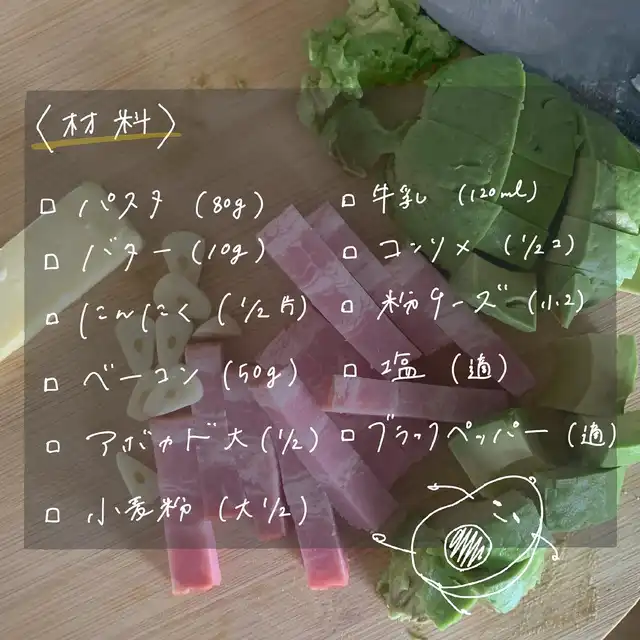 〈材料〉
□ パスタ (80g)
□ バター (10g)
□ にんにく (1/2片)
□ ベーコン (50g)
□ アボカド大 (1/2)
□ 小麦粉 (大1/2)
□ 牛乳 (120ml)
□ コンソメ (1/2コ)
□ 粉チーズ (小2)
□ 塩 (適)
□ ブラックペッパー (適)